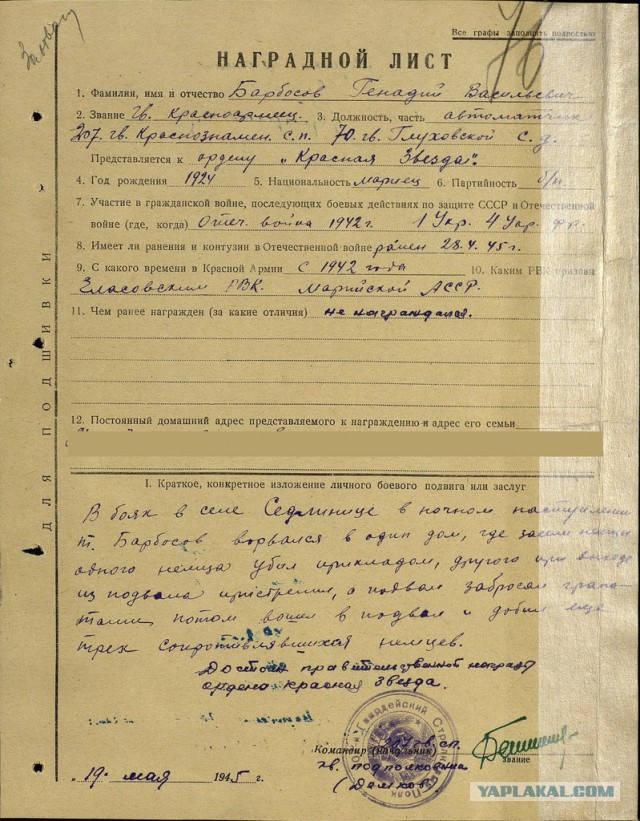 Все графы заполнять полностью
НАГРАДНОЙ ЛИСТ
1. Фамилия, имя и отчество Барбосов Генадий Васильевич
2. Звание Гв. Красноармеец. 3. Должность, часть автоматчик
207. гв. Краснознамен. с.п. 70. гв. Глуховской с.д.
Представляется к ордену „Красная Звезда".
4. Год рождения 1924 5. Национальность мариец 6. Партийность б/п
7. Участие в гражданской войне, последующих боевых действиях по защите СССР и Отечественной
войне (где, когда) Отеч. война 1942 г. 1 Укр. 4 Укр. фр.
8. Имеет ли ранения и контузии в Отечественной войне ранен 28.4.45 г.
9. С какого времени в Красной Армии с 1942 года 10. Каким РВК призван
РВК. Марийской АССР.
11. Чем ранее награжден (за какие отличия) не награждался.
12. Постоянный домашний адрес представляемого к награждению и адрес его семьи
I. Краткое, конкретное изложение личного боевого подвига или заслуг
В боях в селе Седлинице в ночном наступлении
т. Барбосов ворвался в один дом, где засели немцы
одного немца убил прикладом, другого при выходе
из подвала пристрелил, а подвал забросал грана-
тами, потом вошел в подвал и добил еще
трех сопротивлявшихся немцев.
Достоин правительственной награды
ордена Красная Звезда.
Командир (Начальник) 207 гв. сп.
гв. подполковник
звание
19. мая 1945 г.
ДЛЯ ПОДШИВКИ
YAPLAKAL.COM